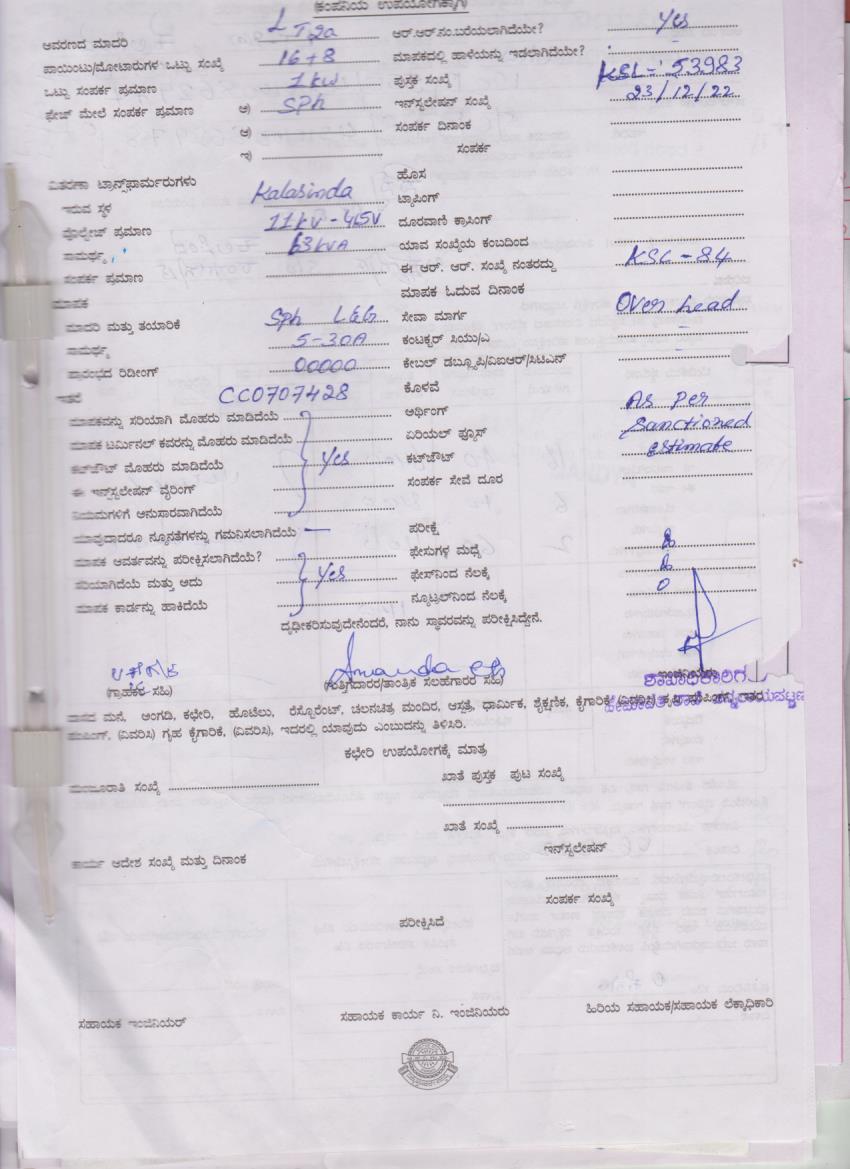 (ಕಂಪನಿಯ ಉಪಯೋಗಕ್ಕಾಗಿ)
ಆವರಣದ ಮಾದರಿ LT2a ಆರ್.ಆರ್.ನಂ.ಬರೆಯಲಾಗಿದೆಯೇ? Yes
ಪಾಯಿಂಟು/ಮೋಟಾರುಗಳ ಒಟ್ಟು ಸಂಖ್ಯೆ 16+8 ಮಾಪಕದಲ್ಲಿ ಹಾಳೆಯನ್ನು ಇಡಲಾಗಿದೆಯೇ?
ಒಟ್ಟು ಸಂಪರ್ಕ ಪ್ರಮಾಣ 1kw ಪುಸ್ತಕ ಸಂಖ್ಯೆ KSL-53983
ಫೇಜ್ ಮೇಲೆ ಸಂಪರ್ಕ ಪ್ರಮಾಣ ಅ) SPh ಇನ್‌ಸ್ಟಲೇಷನ್ ಸಂಖ್ಯೆ 23/12/22
ಆ) ಸಂಪರ್ಕ ದಿನಾಂಕ
ಇ) ಸಂಪರ್ಕ
ವಿತರಣಾ ಟ್ರಾನ್ಸ್‌ಫಾರ್ಮರುಗಳು ಹೊಸ
ಇರುವ ಸ್ಥಳ Kalasinda ಟ್ಯಾಪಿಂಗ್
ವೋಲ್ಟೇಜ್ ಪ್ರಮಾಣ 11kv-415V ದೂರವಾಣಿ ಕ್ರಾಸಿಂಗ್
ಸಾಮರ್ಥ್ಯ 63kVA ಯಾವ ಸಂಖ್ಯೆಯ ಕಂಬದಿಂದ
ಸಂಪರ್ಕ ಪ್ರಮಾಣ ಈ ಆರ್. ಆರ್. ಸಂಖ್ಯೆ ನಂತರದ್ದು KSL-84
ಮಾಪಕ ಮಾಪಕ ಓದುವ ದಿನಾಂಕ
ಮಾದರಿ ಮತ್ತು ತಯಾರಿಕೆ Sph L&G ಸೇವಾ ಮಾರ್ಗ Over head
ಸಾಮರ್ಥ್ಯ 5-30A ಕಂಟಕ್ಟರ್ ಸಿಯು/ಎ
ಪ್ರಾರಂಭದ ರಿಡೀಂಗ್ 00000 ಕೇಬಲ್ ಡಬ್ಲ್ಯೂಪಿ/ಎಐಆರ್/ಸಿಟಿಎಸ್
ಇತರೆ CC0707428 ಕೊಳವೆ
ಮಾಪಕವನ್ನು ಸರಿಯಾಗಿ ಮೊಹರು ಮಾಡಿದೆಯೆ ಅರ್ಥಿಂಗ್ As per
ಮಾಪಕ ಟರ್ಮಿನಲ್ ಕವರನ್ನು ಮೊಹರು ಮಾಡಿದೆಯೆ ಏರಿಯಲ್ ಫ್ಯೂಸ್ Sanctioned
ಕಟ್‌ಔಟ್ ಮೊಹರು ಮಾಡಿದೆಯೆ Yes ಕಟ್‌ಔಟ್ estimate
ಈ ಇನ್‌ಸ್ಟಲೇಷನ್ ವೈರಿಂಗ್ ಸಂಪರ್ಕ ಸೇವೆ ದೂರ
ನಿಯಮಗಳಿಗೆ ಅನುಸಾರವಾಗಿದೆಯೆ
ಯಾವುದಾದರೂ ನ್ಯೂನತೆಗಳನ್ನು ಗಮನಿಸಲಾಗಿದೆಯೆ — ಪರೀಕ್ಷೆ
ಮಾಪಕ ಆವರ್ತವನ್ನು ಪರೀಕ್ಷಿಸಲಾಗಿದೆಯೆ? ಫೇಸುಗಳ ಮಧ್ಯೆ
ಸರಿಯಾಗಿದೆಯೆ ಮತ್ತು ಅದು Yes ಫೇಸ್‌ನಿಂದ ನೆಲಕ್ಕೆ
ಮಾಪಕ ಕಾರ್ಡನ್ನು ಹಾಕಿದೆಯೆ ನ್ಯೂಟ್ರಲ್‌ನಿಂದ ನೆಲಕ್ಕೆ 0
ದೃಢೀಕರಿಸುವುದೇನೆಂದರೆ, ನಾನು ಸ್ಥಾವರವನ್ನು ಪರೀಕ್ಷಿಸಿದ್ದೇನೆ.
Ananda
(ಗ್ರಾಹಕರ ಸಹಿ) (ಗುತ್ತಿಗೆದಾರರ/ತಾಂತ್ರಿಕ ಸಲಹೆಗಾರರ ಸಹಿ) ಶಾಖಾಧಿಕಾರಿಗಳು
ವಾಸದ ಮನೆ, ಅಂಗಡಿ, ಕಛೇರಿ, ಹೊಟೆಲು, ರೆಸ್ಟೋರೆಂಟ್, ಚಲನಚಿತ್ರ ಮಂದಿರ, ಆಸ್ಪತ್ರೆ, ಧಾರ್ಮಿಕ, ಶೈಕ್ಷಣಿಕ, ಕೈಗಾರಿಕೆ, (ವಿವರಿಸಿ)
ಪಂಪಿಂಗ್, (ವಿವರಿಸಿ) ಗೃಹ ಕೈಗಾರಿಕೆ, (ವಿವರಿಸಿ), ಇದರಲ್ಲಿ ಯಾವುದು ಎಂಬುದನ್ನು ತಿಳಿಸಿರಿ.
ಕಛೇರಿ ಉಪಯೋಗಕ್ಕೆ ಮಾತ್ರ
ಮಂಜೂರಾತಿ ಸಂಖ್ಯೆ ಖಾತೆ ಪುಸ್ತಕ ಪುಟ ಸಂಖ್ಯೆ
ಖಾತೆ ಸಂಖ್ಯೆ
ಕಾರ್ಯ ಆದೇಶ ಸಂಖ್ಯೆ ಮತ್ತು ದಿನಾಂಕ ಇನ್‌ಸ್ಟಲೇಷನ್
ಸಂಪರ್ಕ ಸಂಖ್ಯೆ
ಪರೀಕ್ಷಿಸಿದೆ
ಸಹಾಯಕ ಇಂಜಿನಿಯರ್ ಸಹಾಯಕ ಕಾರ್ಯ ನಿ. ಇಂಜಿನಿಯರು ಹಿರಿಯ ಸಹಾಯಕ/ಸಹಾಯಕ ಲೆಕ್ಕಾಧಿಕಾರಿ